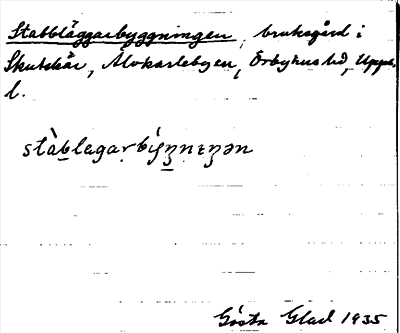 Stabbläggarbyggningen, bruksgård i
Skutskär, Älvkarlebyn, Örbyhus hd, Upps.
l.
stàb̲lagaṛbýŋ̲nɪŋən
Gösta Glad 1935